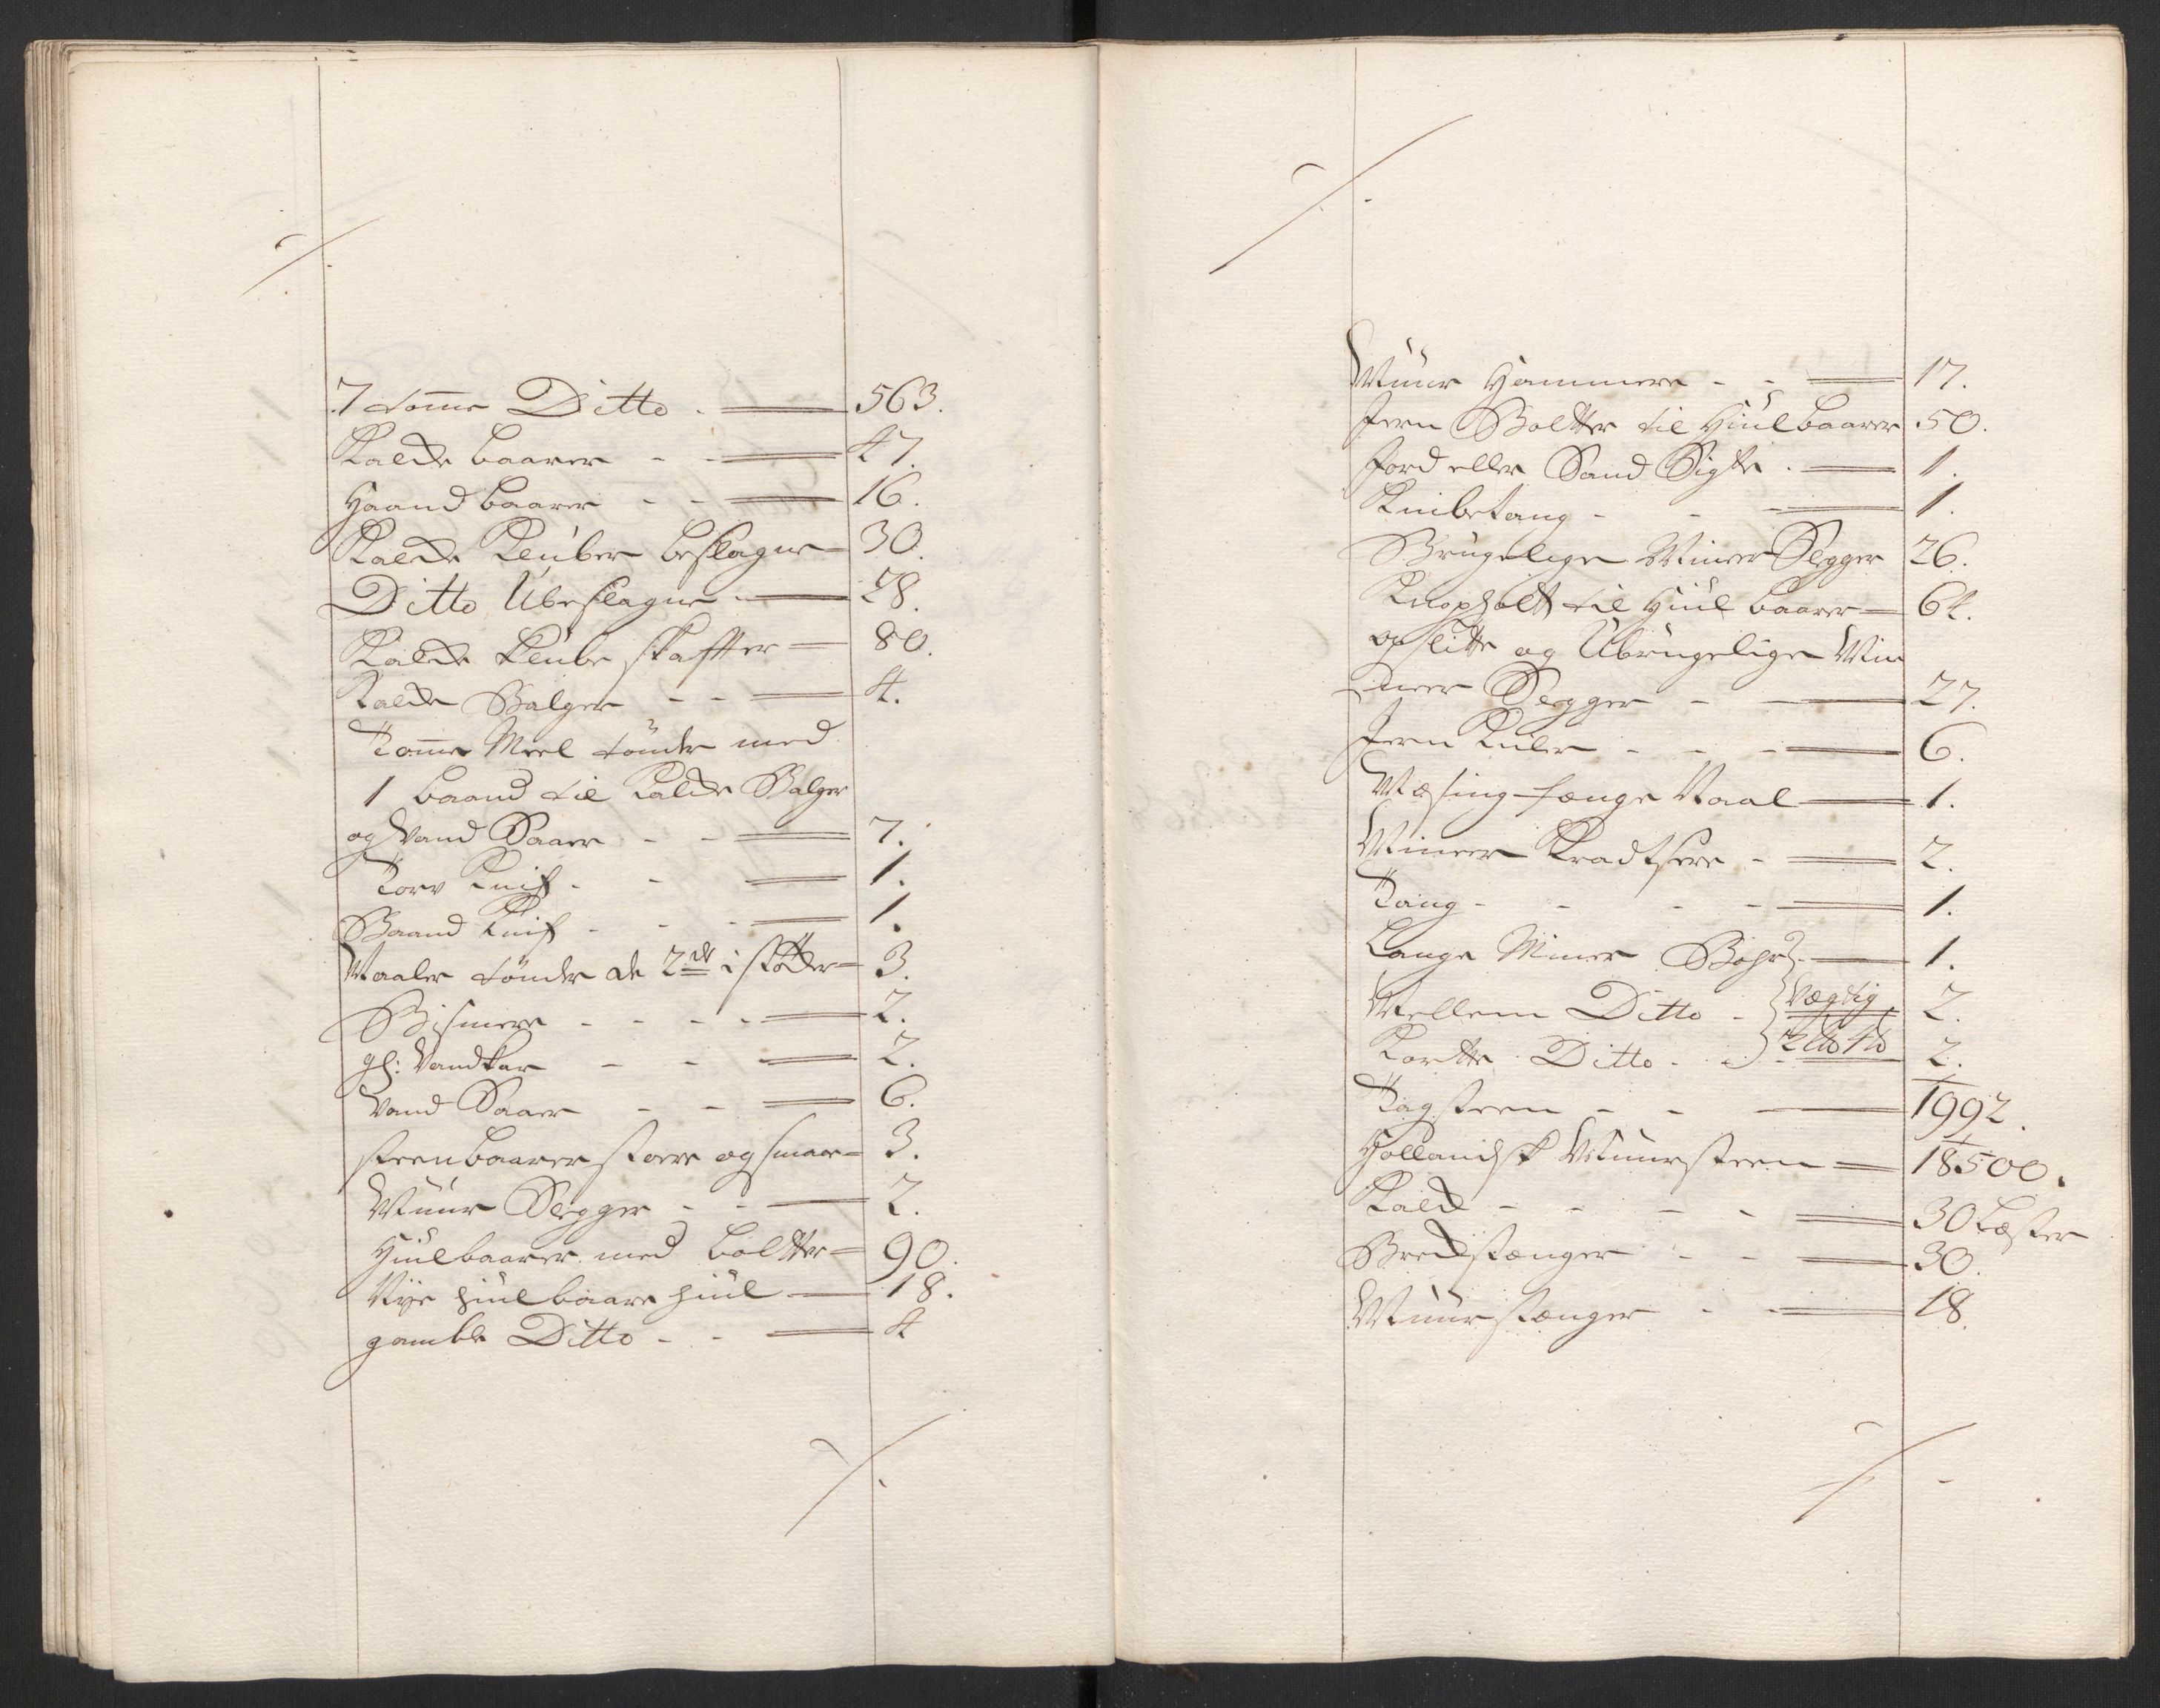 7 tome Ditto 563.
Kalck baarer 47.
Haand baarer 16.
Kalck Kluber beslagne 30.
Ditto Ubeslagne 28.
Kalck Klube skaffter 80.
Kalck Balger 4.
Tome Meel tönder med
1 baand til Kalck Balger
og Vand Saaer 7.
Torv Knif 1.
Baand Knif 1.
Maaler tönder de 2de i stöcker 3.
Bismere 2.
gl: Vandkar 2.
Vand Saaer 6.
steenbaarer store og smaa 3.
Muur Slegger 2.
Hiulbaarer med boltter 90.
Nye hiulbaare hiul 18.
gamble Ditto 4
Muur Hammere 17.
Jern Boltter til Hiulbaarer 50.
Jord eller Sand Sigte 1.
Knibetang 1.
Brugelige Miner Slegger 26.
til Hiul baarer 64.
opslitte og Ubrugelige Mi
ner Slegger 27.
Jern Kiler 6.
Mesing Naal 1.
Miner Kradtsere 2.
Tang 1.
Lange Miner Bohr 1.
Mellem Ditto Vegtig 2.
Kortte Ditto 2.
Tagsteen 1992.
Hollandsk Muursteen 18500.
Kalck 30 Læster
Bredstænger 30.
Muurstænger 18.